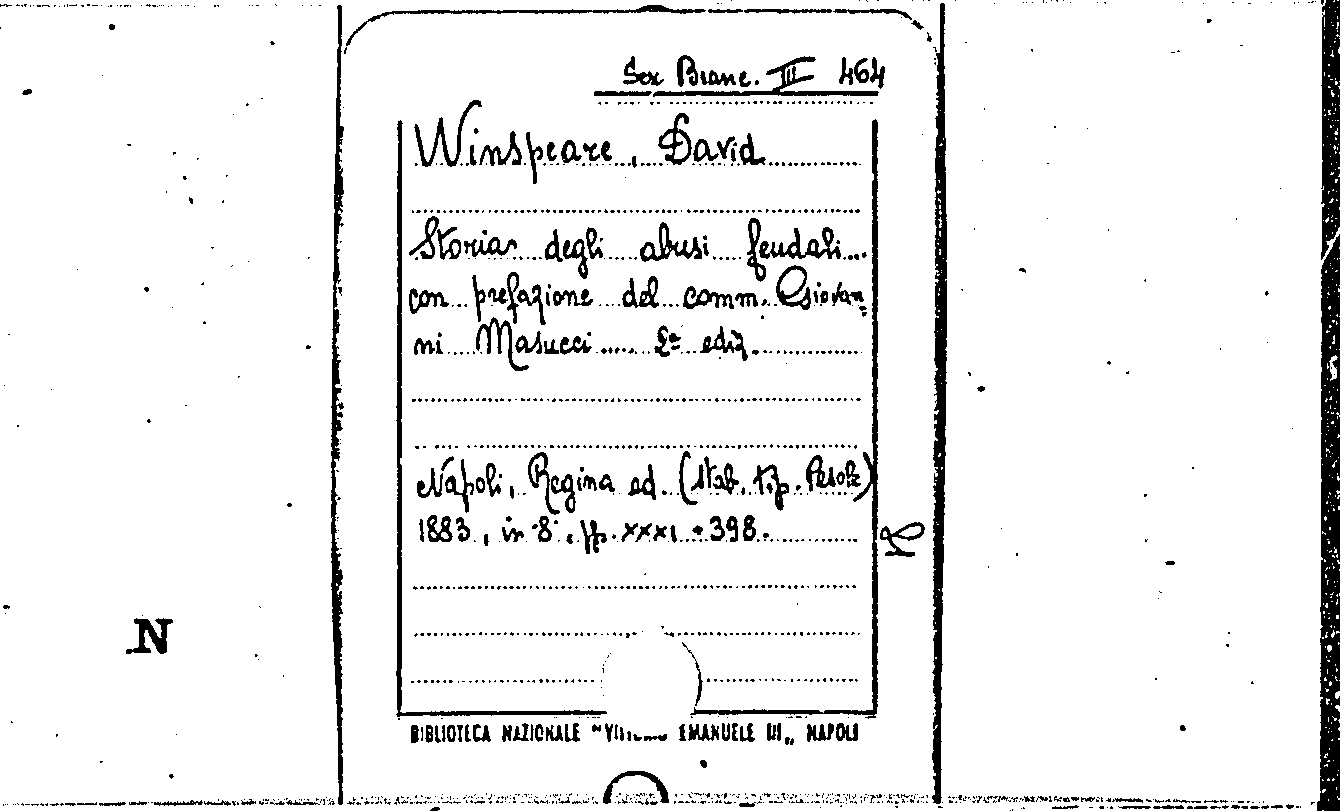 Sex Branc. III 464
Winspeare, David
Storia degli abusi feudali...
con prefazione del comm. Giovan
ni Masucci..... 2ª ediz.
Napoli, Regina ed. (Stab. tip. Pesole)
1883, in 8°, pp. XXXI + 398.
N
BIBLIOTECA NAZIONALE "VITTORIO EMANUELE III„ NAPOLI